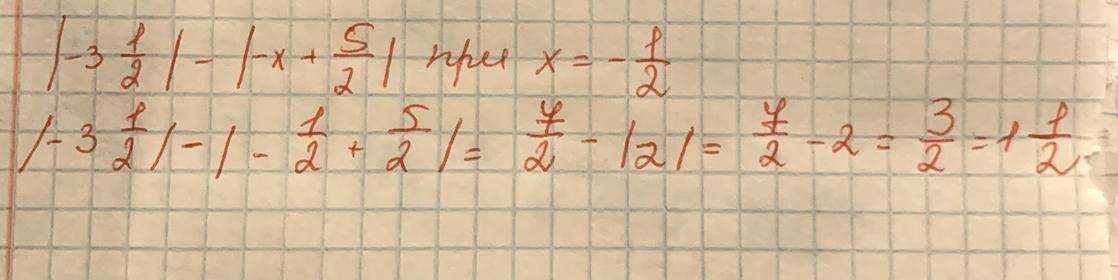 |-3 1/2| - |-x + 5/2| при x = -1/2
|-3 1/2| - |- 1/2 + 5/2| = 7/2 - |2| = 7/2 - 2 = 3/2 = 1 1/2